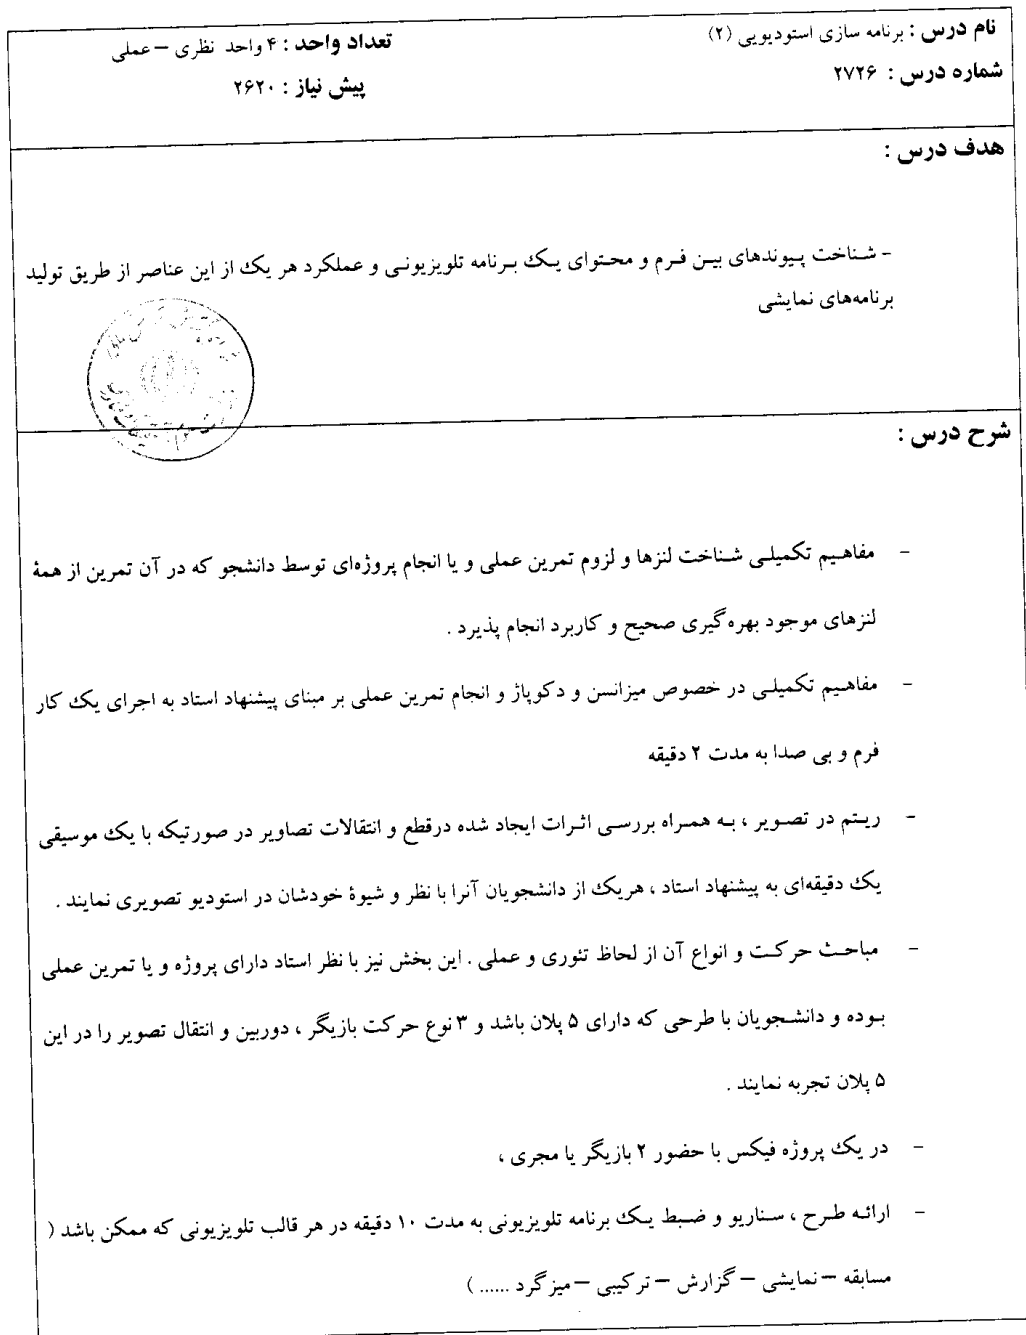 نام درس : برنامه سازی استودیویی (۲)
تعداد واحد : ۴ واحد نظری – عملی
شماره درس : ۲۷۲۶
پیش نیاز : ۲۶۲۰
هدف درس :
- شناخت پیوندهای بین فرم و محتوای یک برنامه تلویزیونی و عملکرد هر یک از این عناصر از طریق تولید
برنامه‌های نمایشی
شرح درس :
- مفاهیم تکمیلی شناخت لنزها و لزوم تمرین عملی و یا انجام پروژه‌ای توسط دانشجو که در آن تمرین از همۀ
لنزهای موجود بهره گیری صحیح و کاربرد انجام پذیرد .
- مفاهیم تکمیلی در خصوص میزانسن و دکوپاژ و انجام تمرین عملی بر مبنای پیشنهاد استاد به اجرای یک کار
فرم و بی صدا به مدت ۲ دقیقه
- ریتم در تصویر ، به همراه بررسی اثرات ایجاد شده درقطع و انتقالات تصاویر در صورتیکه با یک موسیقی
یک دقیقه‌ای به پیشنهاد استاد ، هریک از دانشجویان آنرا با نظر و شیوۀ خودشان در استودیو تصویری نمایند .
- مباحث حرکت و انواع آن از لحاظ تئوری و عملی . این بخش نیز با نظر استاد دارای پروژه و یا تمرین عملی
بوده و دانشجویان با طرحی که دارای ۵ پلان باشد و ۳ نوع حرکت بازیگر ، دوربین و انتقال تصویر را در این
۵ پلان تجربه نمایند .
- در یک پروژه فیکس با حضور ۲ بازیگر یا مجری ،
- ارائه طرح ، سناریو و ضبط یک برنامه تلویزیونی به مدت ۱۰ دقیقه در هر قالب تلویزیونی که ممکن باشد (
مسابقه – نمایشی – گزارش – ترکیبی – میزگرد ...... )